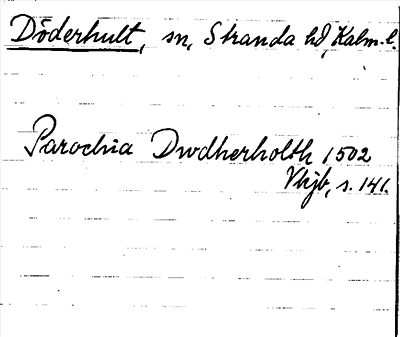 Döderhult, sn, Stranda hd, Kalm. l.
Parochia Dwdherholth 1502
Vkjb, s. 141.